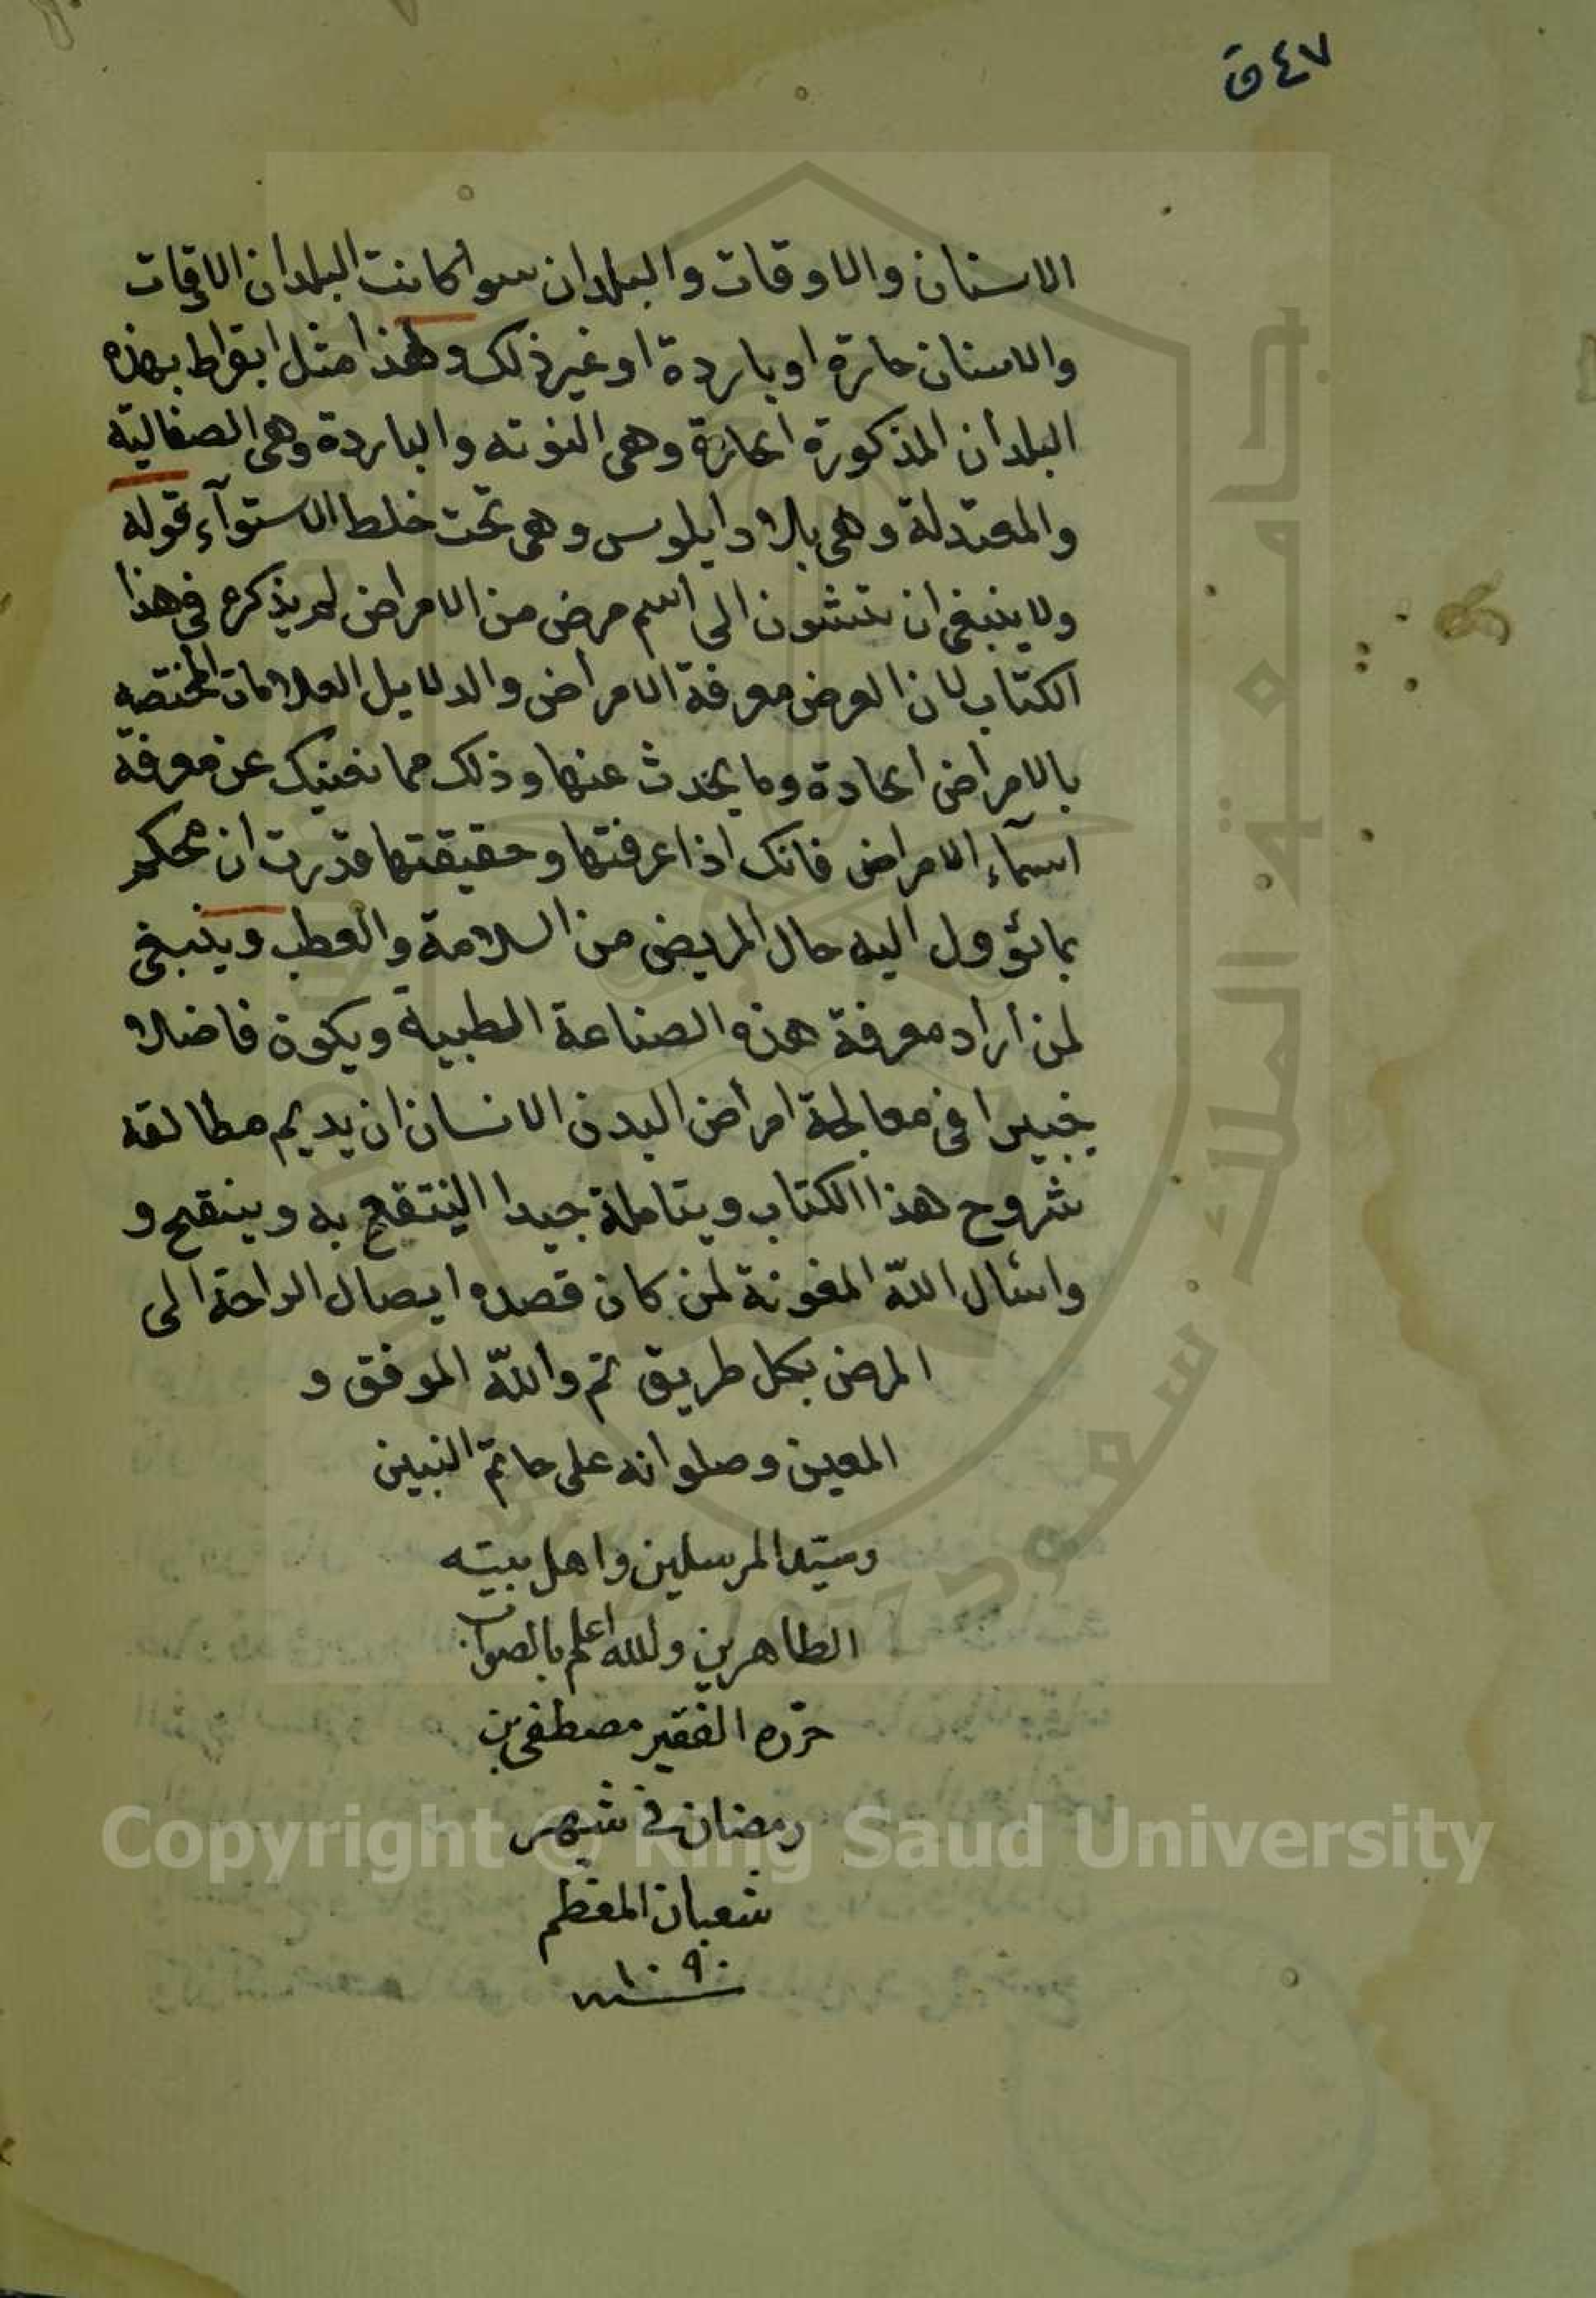 ٤٧ ق
الاسنان والاوقات والبلدان سوا كانت البلدان الاوقات
والاسنان حارة او باردة او غير ذلك ولهذا مثل ابقراط بهذه
البلدان المذكورة الحارة وهى النوته والباردة وهى الصقالية
والمعتدلة وهى بلاد ايلوس وهى تحت خلط الاستوآء قوله
ولا ينبغى ان تتشون الى اسم مرض من الامراض لم يذكره فى هذا
الكتاب لان الغرض معرفة الامراض والدلايل العلامات المختصه
بالامراض الحادة وما يحدث عنها وذلك مما نغنيك عن معرفة
اسمآء الامراض فانك اذا عرفتها وحقيقتها قدرت ان تحكم
بما تؤول اليه حال المريض من السلامة والعطب وينبغى
لمن أراد معرفة هذه الصناعة الطبية ويكون فاضلا
خبيرا فى معالجة امراض البدن الانسان ان يديم مطالعه
شروح هذا الكتاب ويتاملة جيدا الينتفع به وينقح و
واسئال اللّه المغونة لمن كان قصده ايصال الراحة الى
المرضى بكل طريق تم واللّه الموفق و
المعين وصلوانه على خاتم النبيين
وسيّد المرسلين واهل بيته
الطاهرين والله اعلم بالصواب
حرّره الفقير مصطفى بن
رمضان فى شهر
شعبان المعظم
سنه ١٠٩٠
جامعة الملك سعود
1957
Copyright © King Saud University